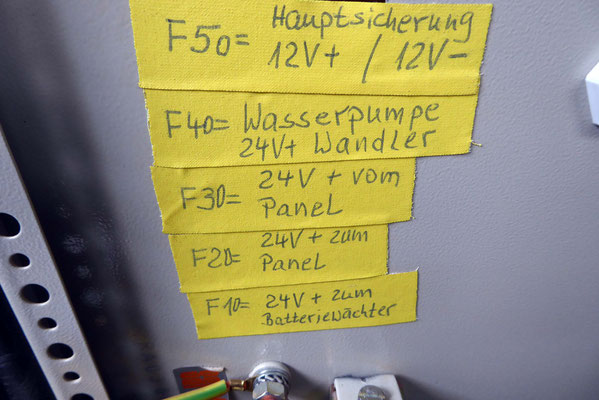 F50= Hauptsicherung
12V+ / 12V-
F40= Wasserpumpe
24V+ Wandler
F30= 24V + vom
Panel
F20= 24V + zum
Panel
F10= 24V + zum
Batteriewächter